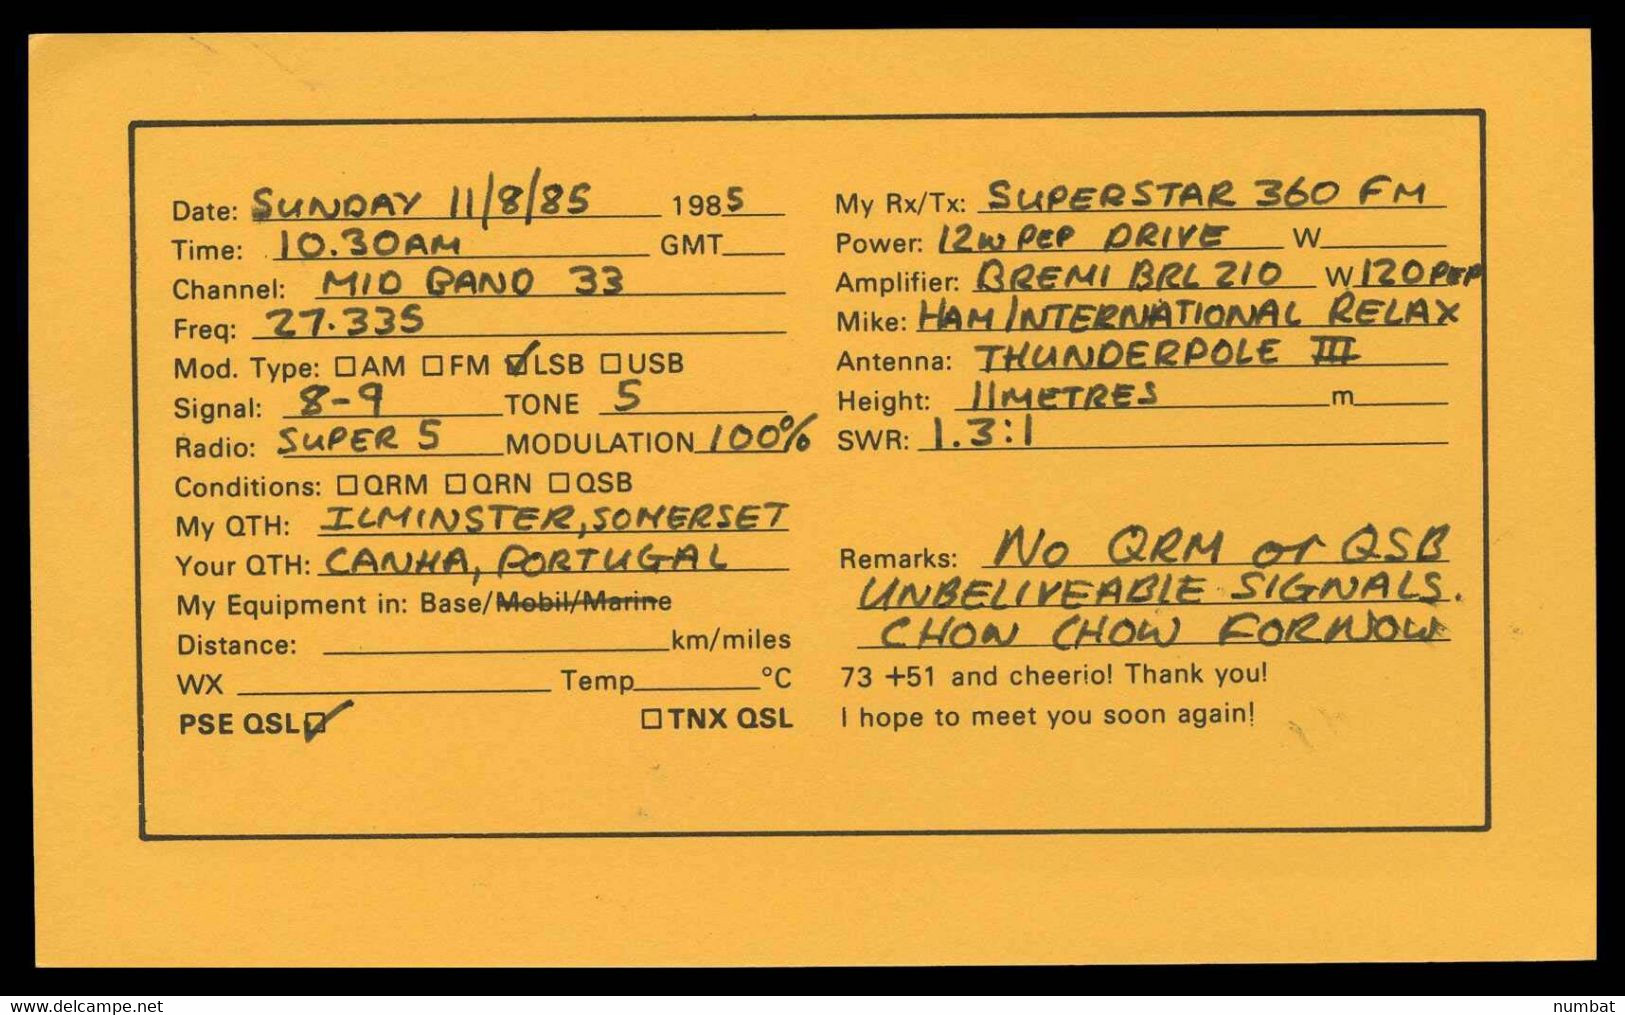 Date: SUNDAY 11/8/85 1985
Time: 10.30AM GMT
Channel: MID BAND 33
Freq: 27.335
Mod. Type: ☐AM ☐FM ☑LSB ☐USB
Signal: 8-9 TONE 5
Radio: SUPER 5 MODULATION 100%
Conditions: ☐QRM ☐QRN ☐QSB
My QTH: ILMINSTER, SOMERSET
Your QTH: CANHA, PORTUGAL
My Equipment in: Base/Mobil/Marine
Distance: km/miles
WX Temp °C
PSE QSL☑ ☐TNX QSL
My Rx/Tx: SUPERSTAR 360 FM
Power: 12W PEP DRIVE W
Amplifier: BREMI BRL 210 W 120 PEP
Mike: HAM INTERNATIONAL RELAX
Antenna: THUNDERPOLE III
Height: 11METRES m
SWR: 1.3:1
Remarks: NO QRM or QSB
UNBELIVEABLE SIGNALS.
CHOW CHOW FOR NOW
73 +51 and cheerio! Thank you!
I hope to meet you soon again!
www.delcampe.net
numbat